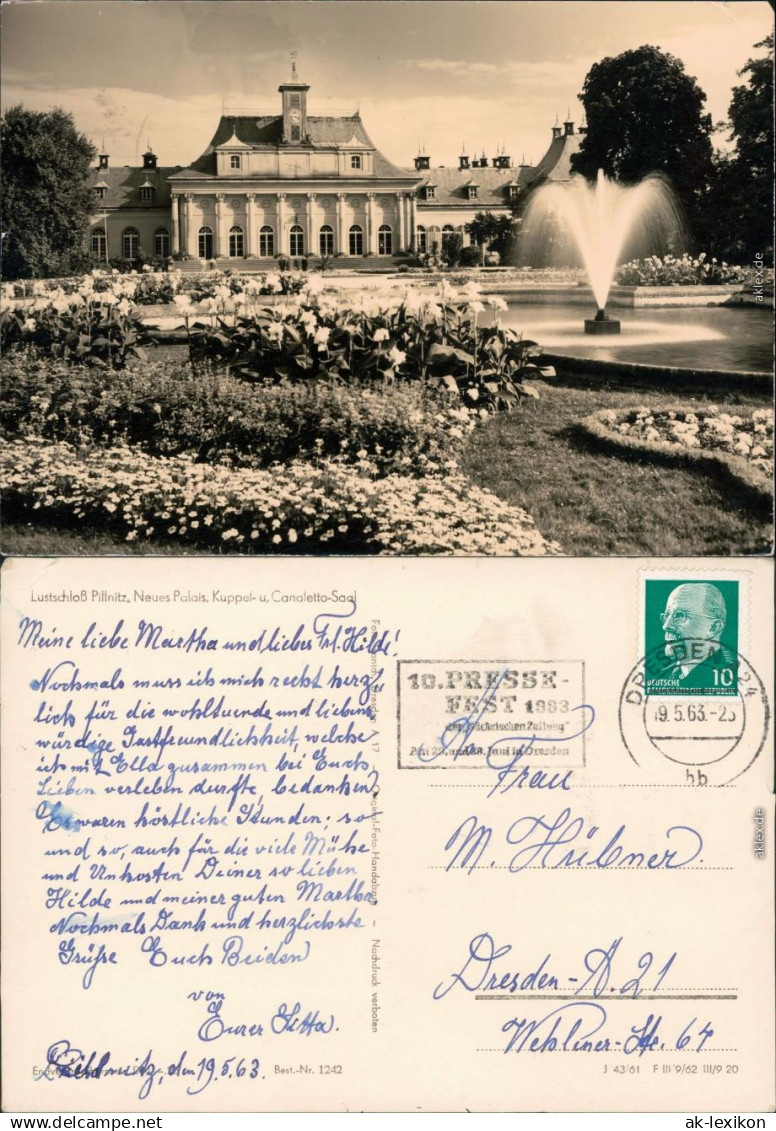 aklex.de
Lustschloß Pillnitz, Neues Palais, Kuppel- u. Canaletto-Saal
Meine liebe Martha und liebes Frl. Hilde!
Nochmals muss ich mich recht herz-
lich für die wohltuende und liebens
würdige Gastfreundlichkeit welche
ich mit Ella zusammen bei Euch
Lieben verleben durfte, bedanken?
Es waren köstliche Stunden; so
und so, auch für die viele Mühe
und Unkosten Deiner so lieben
Hilde und meiner guten Martha
Nochmals Dank und herzlichste
Grüße Euch Beiden
von
Eurer Jetta.
den 19.5.63.
Best.-Nr. 1242
Original-Foto-Handabzug – Nachdruck verboten
10. PRESSE-
FEST 1963
der „Sächsischen Zeitung"
Am 29. und 30. Juni in Dresden
DRESDEN A24
19.5.63.-23
hb
10
DEUTSCHE
DEMOKRATISCHE REPUBLIK
Frau
M. Hübner.
Dresden-A. 21
Str. 64
J 43/61 F III 9/62 III/9 20
aklex.de
Visit: http://www.ak-ansichtskarten.de
ak-lexikon